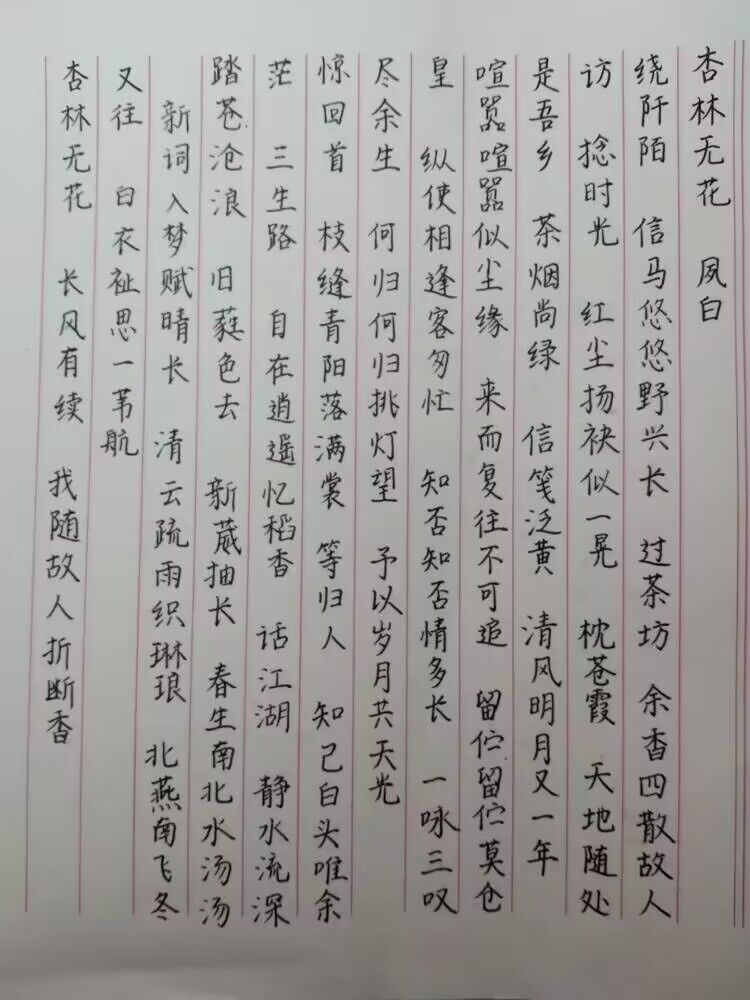 杏林无花 夙白
绕阡陌 信马悠悠野兴长 过茶坊 余香四散故人
访 捻时光 红尘扬袂似一晃 枕苍霞 天地随处
是吾乡 茶烟尚绿 信笺泛黄 清风明月又一年
喧嚣喧嚣似尘缘 来而复往不可追 留伫留伫莫仓
皇 纵使相逢客匆忙 知否知否情多长 一咏三叹
尽余生 何归何归挑灯望 予以岁月共天光
惊回首 枝缝青阳落满裳 等归人 知己白头唯余
茫 三生路 自在逍遥忆稻香 话江湖 静水流深
踏苍沧浪 旧蕤色去 新葳抽长 春生南北水汤汤
新词入梦赋晴长 清云疏雨织琳琅 北燕南飞冬
又往 白衣祉思一苇航
杏林无花 长风有续 我随故人折断香